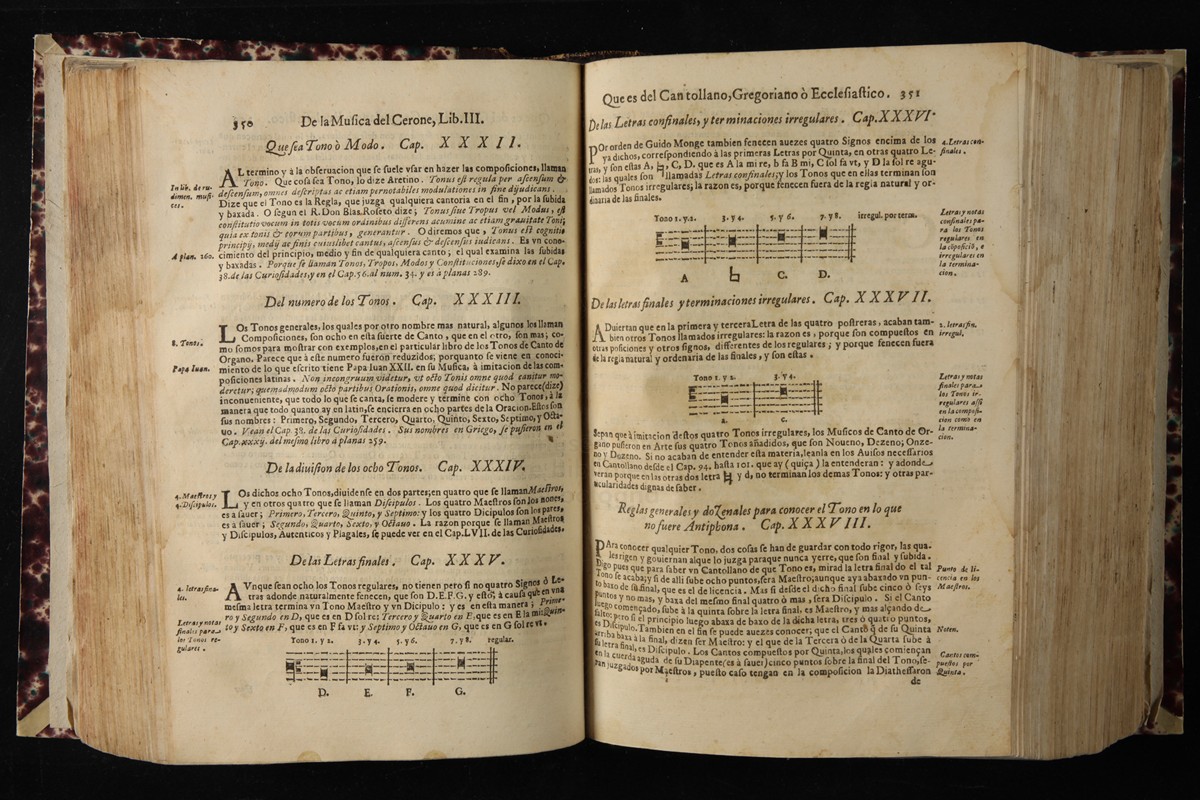 350 De la Musica del Cerone, Lib.III.
Que sea Tono ò Modo. Cap. XXXII.
AL termino y à la obseruacion que se suele vsar en hazer las composiciones, llaman
Tono. Que cosa sea Tono, lo dize Aretino. Tonus est regula per ascensum &
In lib. de ru-
dimen. musi-
ces.
descensum, omnes descriptus ac etiam pernotabiles modulationes in fine dijudicans.
Dize que el Tono es la Regla, que juzga qualquiera cantoria en el fin, por la subida
y baxada. O segun el R. Don Blas Roseto dize; Tonus siue Tropus vel Modus, est
constitutio vocum in totis vocum ordinibus differens acumine ac etiam grauitate Toni;
quia ex tonis & eorum partibus, generantur. O diremos que, Tonus est cognitio
principij, medij ac finis cuiuslibet cantus, ascensus & descensus iudicans. Es vn cono-
A plan. 260.
cimiento del principio, medio y fin de qualquiera canto; el qual examina las subidas
y baxadas. Porque se llaman Tonos, Tropos, Modos y Constituciones, se dixo en el Cap.
38. de las Curiosidades, y en el Cap. 56. al num. 34. y es à planas 289.
Del numero de los Tonos. Cap. XXXIII.
LOs Tonos generales, los quales por otro nombre mas natural, algunos los llaman
Composiciones, son ocho en esta suerte de Canto, que en el otro, son mas; co-
8. Tonos.
mo somos para mostrar con exemplos, en el particular libro de los Tonos de Canto de
Organo. Parece que à este numero fueron reduzidos; porquanto se viene en conoci-
Papa Iuan.
miento de lo que escrito tiene Papa Iuan XXII. en su Musica, à imitacion de las com-
posiciones latinas. Non incongruum videtur, vt octo Tonis omne quod canitur mo-
deretur; quemadmodum octo partibus Orationis, omne quod dicitur. No parece (dize)
inconueniente, que todo lo que se canta, se modere y termine con ocho Tonos, à la
manera que todo quanto ay en latin, se encierra en ocho partes de la Oracion. Estos son
sus nombres: Primero, Segundo, Tercero, Quarto, Quinto, Sexto, Septimo, y Octa-
uo. Vean el Cap. 38. de las Curiosidades. Sus nombres en Griego, se pusieron en el
Cap. xxxij. del mesmo libro à planas 259.
De la diuision de los ocho Tonos. Cap. XXXIV.
4. Maestros y
4. Discipulos.
LOs dichos ocho Tonos, diuidense en dos partes; en quatro que se llaman Maestros,
y en otros quatro que se llaman Discipulos. Los quatro Maestros son los nones,
es à sauer; Primero, Tercero, Quinto, y Septimo: y los quatro Dicipulos son los pares,
es à sauer; Segundo, Quarto, Sexto, y Octauo. La razon porque se llaman Maestros
y Discipulos, Autenticos y Plagales, se puede ver en el Cap. LVII. de las Curiosidades.
De las Letras finales. Cap. XXXV.
4. letras fina-
les.
AVnque sean ocho los Tonos regulares, no tienen pero si no quatro Signos ò Le-
tras adonde naturalmente fenecen, que son D.E.F.G. y esto, à causa que en vna
mesma letra termina vn Tono Maestro y vn Dicipulo: y es en esta manera; Prime-
Letras y notas
finales para
los Tonos re-
gulares.
ro y Segundo en D, que es en D sol re: Tercero y Quarto en E, que es en E la mi: Quin-
to y Sexto en F, que es en F fa vt: y Septimo y Octauo en G, que es en G sol re vt.
Tono 1. y 2. 3. y 4. 5. y 6. 7. y 8. regular.
D. E. F. G.
Que es del Cantollano, Gregoriano ò Ecclesiastico. 351
De las Letras confinales, y terminaciones irregulares. Cap. XXXVI.
POr orden de Guido Monge tambien fenecen auezes quatro Signos encima de los
ya dichos, correspondiendo à las primeras Letras por Quinta, en otras quatro Le-
4. Letras con-
finales.
tras, y son estas A, ♮, C, D. que es A la mi re, b fa B mi, C sol fa vt, y D la sol re agu-
dos: las quales son llamadas Letras confinales; y los Tonos que en ellas terminan son
llamados Tonos irregulares; la razon es, porque fenecen fuera de la regia natural y or-
dinaria de las finales.
Tono 1. y 2. 3. y 4. 5. y 6. 7. y 8. irregul. por term.
Letras y notas
confinales pa-
ra los Tonos
regulares en
la cōposiciō, e
irregulares en
la termina-
cion.
A ♮ C. D.
De las letras finales y terminaciones irregulares. Cap. XXXVII.
ADuiertan que en la primera y tercera Letra de las quatro postreras, acaban tam-
bien otros Tonos llamados irregulares: la razon es, porque son compuestos en
2. letras fin.
irregul.
otras posiciones y otros signos, differentes de los regulares; y porque fenecen fuera
de la regia natural y ordenaria de las finales, y son estas.
Tono 1. y 2. 3. y 4.
Letras y notas
finales para
los Tonos ir-
regulares assi
en la composi-
cion como en
la termina-
cion.
a. c.
Sepan que à imitacion destos quatro Tonos irregulares, los Musicos de Canto de Or-
gano pusieron en Arte sus quatro Tonos añadidos, que son Noueno, Dezeno; Onze-
no y Dozeno. Si no acaban de entender esta materia, leanla en los Auisos necessarios
en Cantollano desde el Cap. 94. hasta 101. que ay (quiça) la entenderan: y adonde
veran porque en las otras dos letra ♮ y d, no terminan los demas Tonos: y otras par-
ticularidades dignas de saber.
Reglas generales y doZenales para conocer el Tono en lo que
no fuere Antiphona. Cap. XXXVIII.
PAra conocer qualquier Tono, dos cosas se han de guardar con todo rigor, las qua-
les rigen y gouiernan al que lo juzga para que nunca yerre, que son final y subida.
Digo pues que para saber vn Cantollano de que Tono es, mirad la letra final do el tal
Tono se acaba; y si de alli sube ocho puntos, sera Maestro; aunque aya abaxado vn pun-
Punto de li-
cencia en los
Maestros.
to baxo de su final, que es el de licencia. Mas si desde el dicho final sube cinco ò seys
puntos y no mas, y baxa del mesmo final quatro ò mas, sera Discipulo. Si el Canto
luego començado, sube à la quinta sobre la letra final, es Maestro, y mas alçando de
saltos pero si el principio luego abaxa de baxo de la dicha letra, tres ò quatro puntos,
es Discipulo. Tambien en el fin se puede auezes conocer; que el Canto q̃ de su Quinta
Noten.
arriba baxa à la final, dizen ser Maestro: y el que de la Tercera ò de la Quarta sube à
su letra final, es Discipulo. Los Cantos compuestos por Quinta, los quales comiençan
en la cuerda aguda de su Diapente (es à sauer) cinco puntos sobre la final del Tono, se-
Cantos com-
puestos por
Quinta.
ran juzgados por Maestros, puesto caso tengan en la composicion la Diathessaron
de